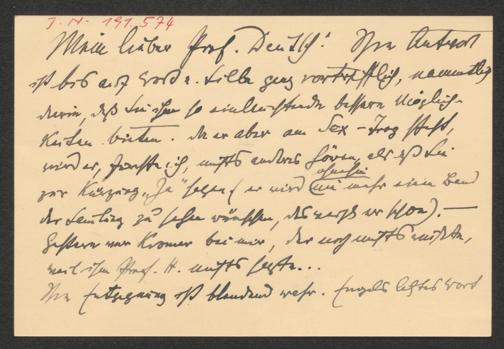 I. N. 191.574
Mein lieber Prof. Deutsch! Ihre Antwort
ist bis auf Wort u. Silbe ganz vortrefflich, namentlich
darin, daß Sie ihm so einleuchtende bessere Möglich-
keiten bieten. Da er aber am Sex-
wird er, fürchte ich, nichts anderes hören, als daß Sie
zur Kürzung „Ja" sagen (er wird ohnehin nie mehr einen Band
der Sammlung zu sehen wünschen, das weiß er schon). —
Gestern war Kromer bei mir, der noch nichts wußte,
weil ihm Prof. H. nichts sagte...
Ihre Entgegnung ist blendend wahr. Engels letztes Wort